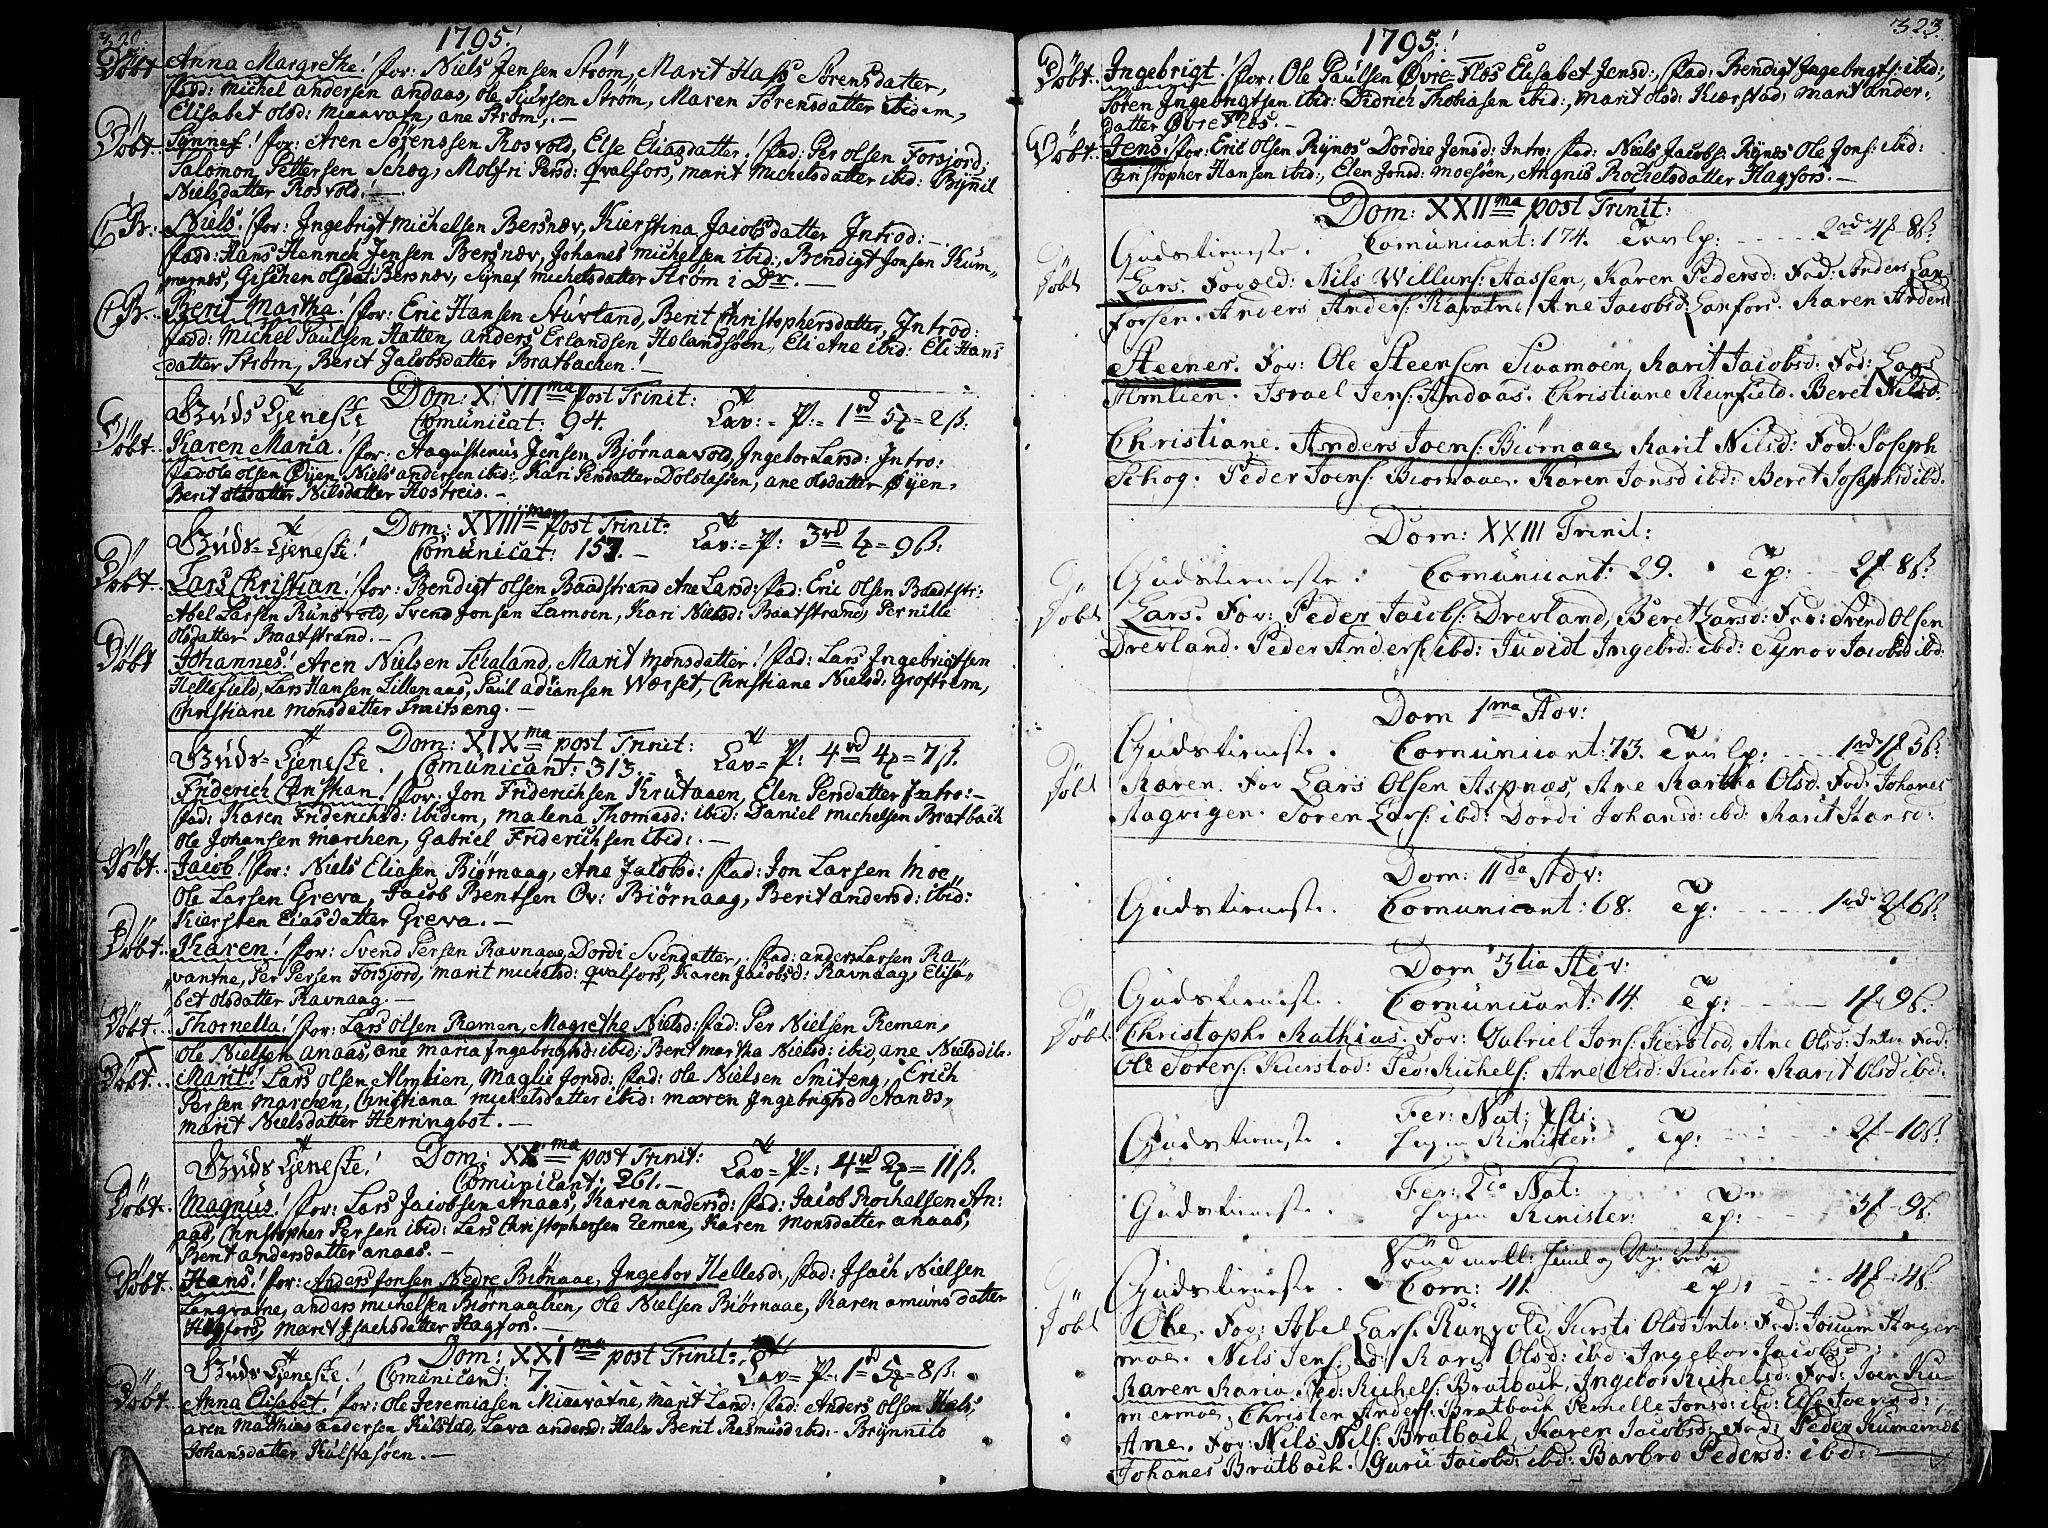 1795!
Døbt. Anna Margrethe! for: Niels Jensen Strøm, Marit Hass Sørensdatter,
fadd: michel andersen andaas, ole Siursen Strøm, Maren Sørensdatter ibidem,
Elisabet olsd: miaavatn, ane Strøm,.—
Døbt. Synnef! for: Aren Sørenssen Rosvold, Else Eliasdatter! fad: Per olsen Forsjord:
Salomon Pettersen Schog, Molfri Persd: qvalfors, marit michelsdatter ibid: Bÿnil
Nielsdatter Rosvold!—
C B. Niels! for: Ingebrigt michelsen Bersnæv, Kierstina Jacobsdatter Introd:—.
fadd: Hans Henrich Jensen Bersnæv, Johanes michelsen ibid:, Bendigt Jonsen Kum-
mernæs, Gischen olsdat: Bersnæv, Synef michelsdatter Strøm i Dr.—
C B. Berit Martha! for: Eric Hansen Stuvland, Berit Christophersdatter, Introd:
fadd: Michel Paulsen Hatten, anders Erlandsen Holandsøen, Eli Ane ibid: Eli Hans
datter Strøm, Berit Jacobsdatter Bratbachen!—
Dom: XVII ma post Trinit:
Guds Tjeneste Comunicat: 94. Lav: = P: = 1 rd 5 = 2 ß:
Døbt. Karen Maria! for: Augustinus Jensen, Bjørnaavold, Ingebor Larsd: Intro:
fad ole olsen Øyen, Niels andersen ibid:, Kari Persdatter Dolstassen, ane olsdatter Øyen,
Berit olsdatter Nilsdatter Hostreis.—
Dom: XVIII may post Trinit:
Guds= Tjeneste! Comunicat: 157.— Lav: = P: 3 rd = 9 ß:
Døbt. Lars Christian! for: Bendigt olsen Baadstrand Ane Larsd: fad: Eric olsen Baadstr:
Abel Larsen Runsvold, Svend Jonsen Lamoen, Kari Nielsd: Baatstrand, Pernille
olsdatter Baatstrand.—
Døbt Johannes! Aren Nielsen Schaland, Marit monsdatter! fad: Lars Ingebrigtsen
Hellefield, Lars Hansen Lillenaas, Paul adiansen Wærset, Christiane Nielsd: Groftrem,
Christiane monsdatter Smitseng.—
Dom: XIX ma post Trinit:
Guds= Tjeneste. Comunicant: 313. Lav= P: 4 rd 4 = 7 ß.
Friderich Christian! for: Jon Friderichsen Krutaaen, Elen Persdatter Intro:—
fad: Karen Friderichsd: ibidem, malena Thomasd: ibid: Daniel michelsen Bratbach
ole Johansen marchen, Gabriel Friderichsen ibid:.—
Døbt. Jacob! for: Niels Eliasen Biørnaag, Ane Jacobsd: fad: Jon Larsen moe,
Ole Larsen Greva, Jacob Bentsen Øv: Biørnaag, Berit andersd: ibid:
Kiersten Eliasdatter Greva.—
Døbt. Karen! for: Svend Persen Ravnaag, Dordi Svendatter,. fad: anders Larsen Ra
vantne, Per Persen Forsjord, marit michelsd: qvalfors, Karen Jacobsd: Ravnaag, Elisa
bet olsdatter Ravnaag.—
Døbt. Thornetta! for: Lars olsen Remen, Magrethe Nielsd: fad: Per Nielsen Remen,
Ole Nielsen anaas, ane maria Ingebrigtsd: ibid: Berit martha Nielsd: ibid, ane Nielsd ib:
Døbt. Marit! Lars olsen Almlien, Maglie Jonsd: fad: ole Nielsen Smiteng, Erich
Persen marchen, Christiana michelsdatter ibid: maren Ingebrigtsd Aanæs,
marit Nielsdatter Herringbot.—
Dom: XX ma post Trinit:
Guds Tjeneste! Comunicant: 261.— Lav= P=: 4 rd 2 = 11 ß.
Døbt. Magnus! for: Lars Jacobsen Anaas, Karen andersd: fad: Jacob Rochelsen An:
aas, Christopher Persen ibid: Lars Christophersen Remen, Karen monsdatter anaas,
Berit andersdatter anaas.—
Døbt. Hans! for: Anders Jonsen Nedre Biønaae, Ingebor Hellesd:, fad: Isach Nielsen
Langvatne, anders michelsen Biørnaaglien, ole Nielsen Biørnaae, Karen amunsdatter
Hagfors, marit Isachsdatter Hagfors.—
Dom: XXI ma post Trinit:
Guds Tjeneste! Comunicant: 7.— Lav= P=: 1 rd 5 = 8 ß.
Døbt. Anna Elisabet! for: ole Jeremiasen Miaavatne, marit Land: fad: Anders olsen Hals,
aren Matthias andersen Kulstad, Lava andersd: Hals, Berit Rasmusd ibid:- Brynnild
Johansdatter Kulstasøen.—
323.
1795!
Døbt. Ingebrigt! for: Ole Paulsen Øvre-Flos Elisabet Jensd:, fad: Bendigt Ingebrigts: ibid:,
Søren Ingebrigtsen ibid: Didrich Thobiasen ibid:, marit olsd: Kierstad, marit ander-
datter Øvre Flos.—
Døbt. Jens! for: Eric Olsen Rynes Dordie Jensd: Intro: fad: Niels Jacobs: Rynes Ole Jons: ibid:
Christopher Hansen ibid:, Elen Jonsd: moesøen, Angnis Rochelsdatter Hagfors.—
Dom: XXII ma post Trinit:
Gudstieneste. Comunicant: 174. 2 rd 4 8 ß
Døbt Lars. Foræld: Nils Willums: Aassen, Karen Pedersd: Fad: Anders Lax
Forsen. Anders Anders: Ravatn. Ane Jacobsd: Laxfors. Karen Andersd
Steener. For: Ole Steensen Svaamoen, Marit Jacobsd: Fad: Lars
Almlien. Israel Jens: Andaas. Christiane Reinfield. Beret Nilsd.
Christiane. Anders Joens: Biørnaae, Marit Nilsd: Fad: Joseph
Schog. Peder Joens: Biørnaae. Karen Jonsd ibd: Beret Josephsd ibd.
Dom: XXIII Trinit:
Gudstieneste. Comunicant: 29. 2 8 ß
Døbt Lars. For: Peder Jacobs: Drevland, Beret Larsd: Fad: Svend Olsen
Drevland. Peder Anders: ibd: Judidt Ingebrd: ibd: Synov Jacobsd ibd:
Dom 1 ma Adv:
Gudstieneste. Comunicant: 73. 1 rd 5 ß.
Døbt Karen. For Lars Olsen Aspnæs, Ane Martha Olsd. Fad: Johanes
Hagvigen. Søren Lars: ibd: Dordi Johansd: ibd: Marit Hansd:
Dom: II da Adv:
Gudstieneste. Comunicant: 68. 1 rd 2 6 ß.
Dom 3 tia Adv:
Gudstieneste. Comunicant: 14. 1 9 ß.
Døbt. Christophr Mathias. For: Gabriel Jons: Kierstad, Ane Olsd: Intr Fad:
Ole Sørens: Kierstad: Ped: Michels: Ane Olsd: Marit Olsd ibd.
Fer: Nat: Xsti:
Gudstieneste. Ingen Minister: 2 10 ß
Fer: 2 da Nat:
Gudstieneste. Ingen Minister: 3 9 ß.
Gudstieneste. Com: 41. 4 4 ß.
Døbt Ole. For: Abel Lars: Runvold, Kirsti Olsd Intr: Fad: Anger
moe. Nils Jens: Marit Olsd: ibd: Ingebor Jacobsd:
Karen Maria. Ped: Michels: Bratback, Ingebor Michelsd: Fad: Joen Ku
mermoe, Christen Anders: Bratback Pernelle Jonsd: ibd: Else
Ane. For: Nils Nils: Bratback, Karen Jacobsd: Fad: Peder Kumernæs
Johanes Bratback. Guru Jacobd: ibd: Barbro Pedersd: ibd: